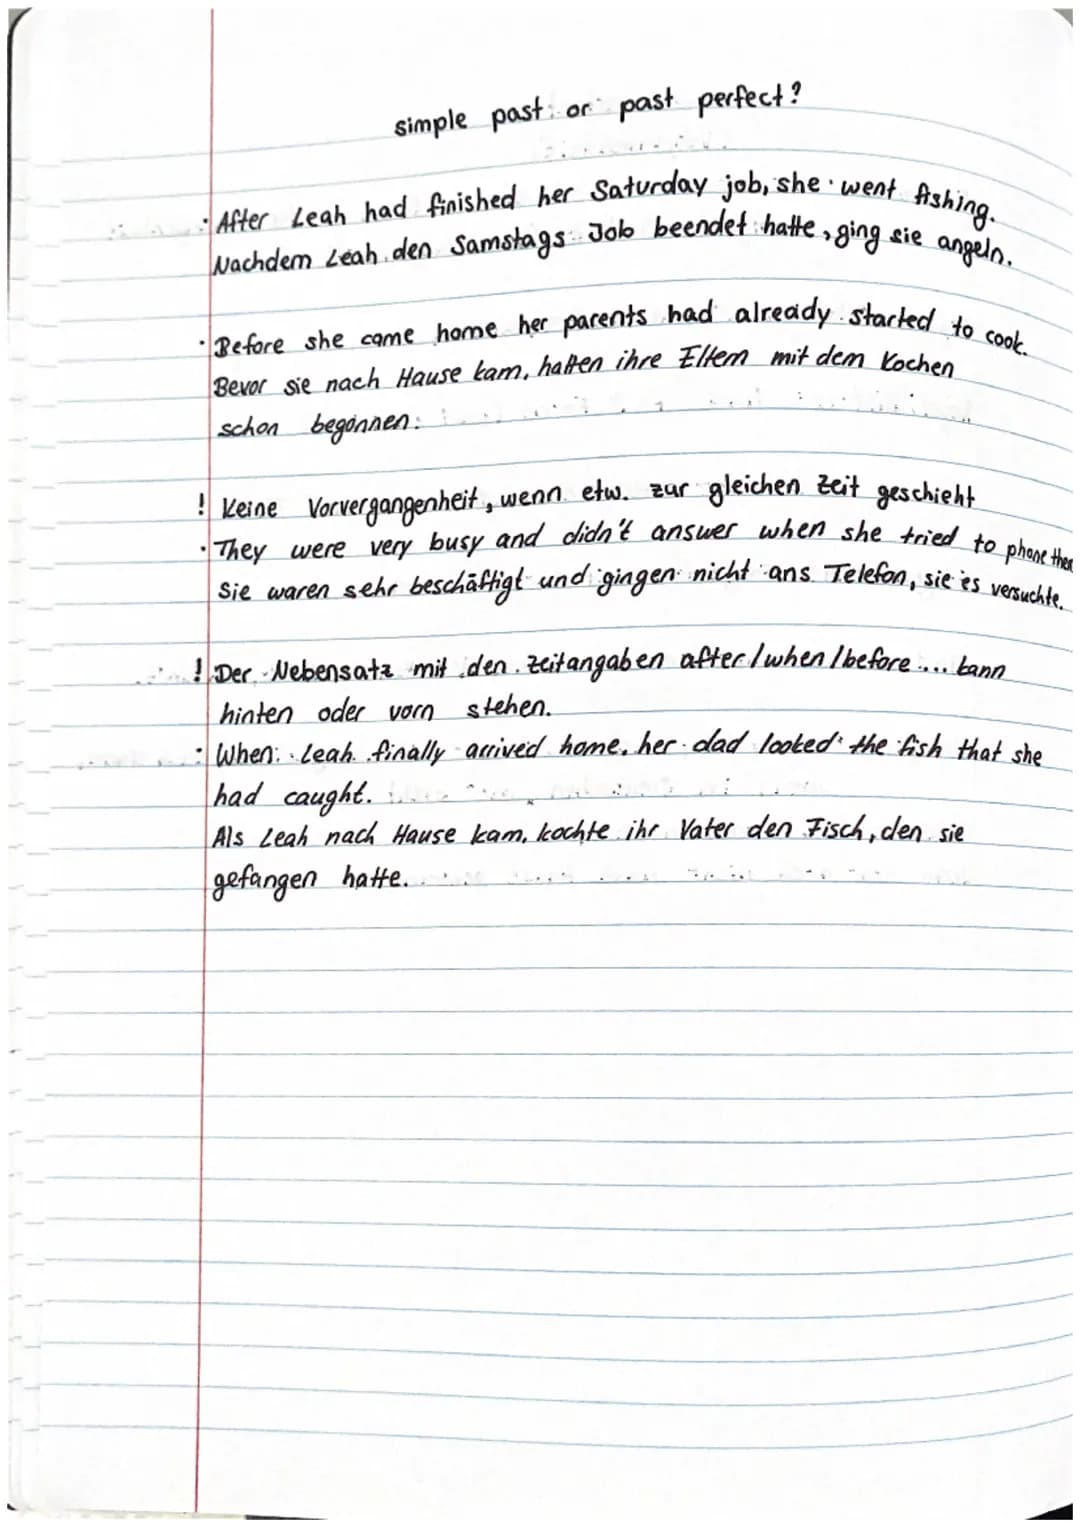 simple past or past perfect?
· After Leah had finished her Saturday job, she went fishing.
Nachdem Leah den Samstags Job beendet hatte, ging sie angeln.
· Before she came home her parents had already started to cook.
Bevor sie nach Hause kam, hatten ihre Eltern mit dem Kochen
schon begonnen.
! Keine Vorvergangenheit, wenn etw. zur gleichen Zeit geschieht
· They were very busy and didn't answer when she tried to phone
Sie waren sehr beschäftigt und gingen nicht ans Telefon, sie es versuchte.
! Der Nebensatz mit den Zeitangaben after/when/before ... kann
hinten oder vorn stehen.
· When Leah finally arrived home, her dad looked the fish that she
had caught.
Als Leah nach Hause kam, kochte ihr Vater den Fisch, den sie
gefangen hatte.